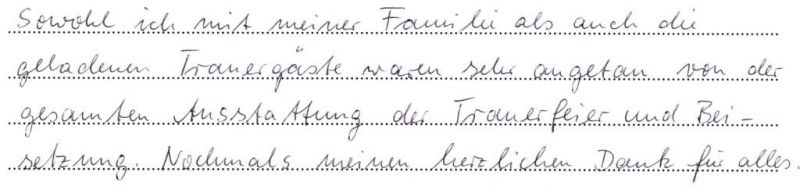 Sowohl ich mit meiner Familie als auch die
geladenen Trauergäste waren sehr angetan von der
gesamten Ausstattung der Trauerfeier und Bei-
setzung. Nochmals meinen herzlichen Dank für alles.